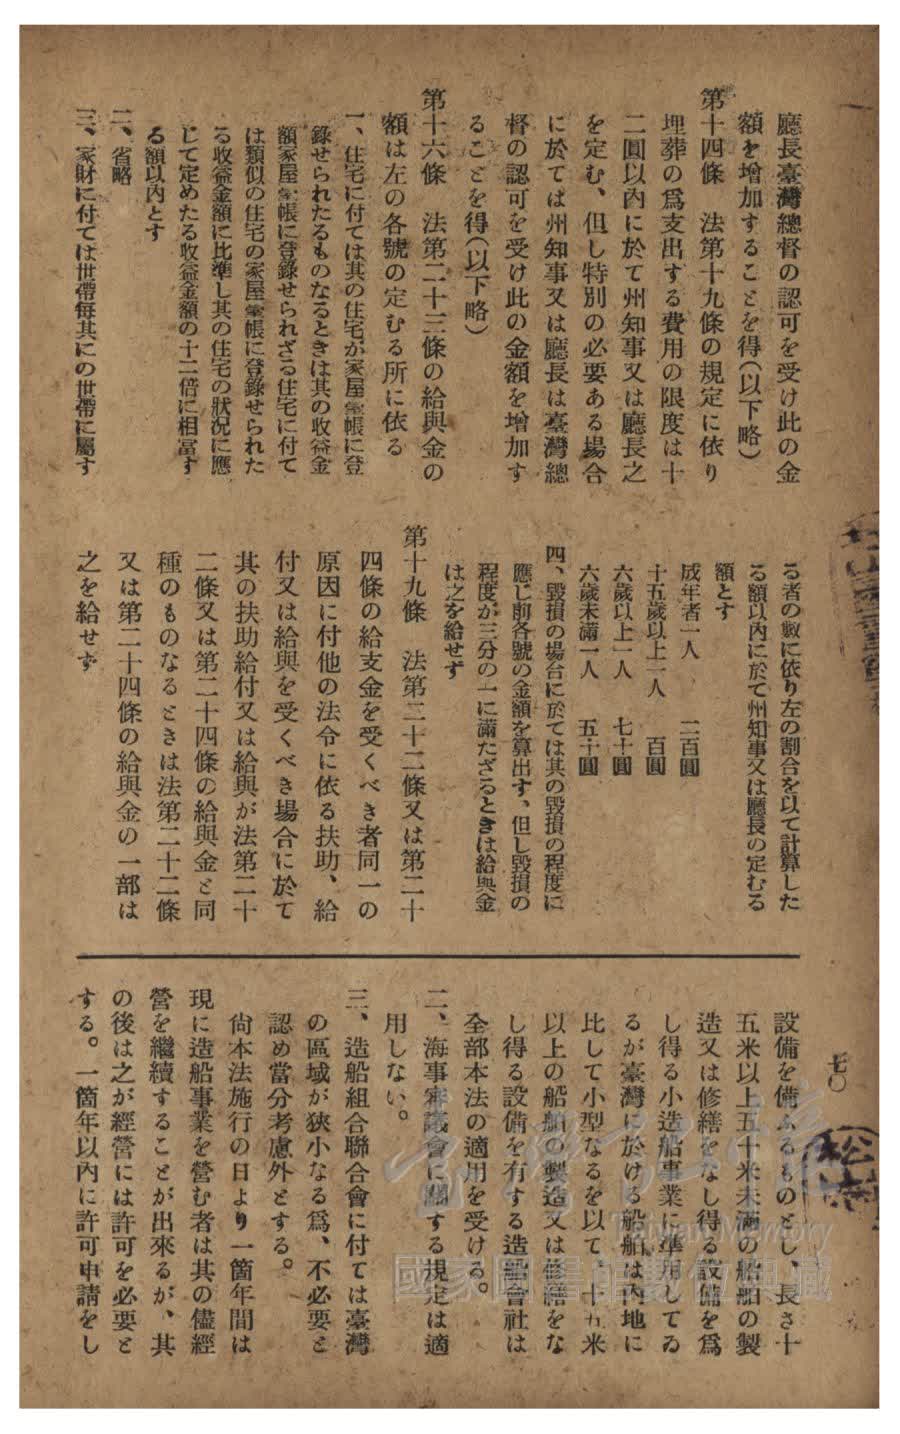 廳長臺灣總督の認可を受け此の金
額を增加することを得(以下略)
第十四條　法第十九條の規定に依り
埋葬の爲支出する費用の限度は十
二圓以內に於て州知事又は廳長之
を定む、但し特別の必要ある場合
に於ては州知事又は廳長は臺灣總
督の認可を受け此の金額を增加す
ることを得(以下略)
第十六條　法第二十三條の給與金の
額は左の各號の定むる所に依る
一、住宅に付ては其の住宅が家屋臺帳に登
錄せられたるものなるときは其の收益金
額家屋臺帳に登錄せられざる住宅に付て
は類似の住宅の家屋臺帳に登錄せられた
る收益金額に比準し其の住宅の狀況に應
じて定めたる收益金額の十二倍に相當す
る額以內とす
二、省略
三、家財に付ては世帶每其にの世帶に屬す
る者の數に依り左の割合を以て計算した
る額以內に於て州知事又は廳長の定むる
額とす
成年者一人　二百圓
十五歲以上一人　百圓
六歲以上一人　七十圓
六歲未滿一人　五十圓
四、毀損の場合に於ては其の毀損の程度に
應じ前各號の金額を算出す、但し毀損の
程度が三分の一に滿たざるときは給與金
は之を給せず
第十九條　法第二十二條又は第二十
四條の給支金を受くべき者同一の
原因に付他の法令に依る扶助、給
付又は給與を受くべき場合に於て
其の扶助給付又は給與が法第二十
二條又は第二十四條の給與金と同
種のものなるときは法第二十二條
又は第二十四條の給與金の一部は
之を給せず
七〇
設備を備ふるものとし、長さ十
五米以上五十米未滿の船舶の製
造又は修繕をなし得る設備を爲
し得る小造船事業に準用してゐ
るが臺灣に於ける船舶は內地に
比して小型なるを以て、十五米
以上の船舶の製造又は修繕をな
し得る設備を有する造船會社は
全部本法の適用を受ける。
二、海事審議會に關する規定は適
用しない。
三、造船組合聯合會に付ては臺灣
の區域が狹小なる爲、不必要と
認め當分考慮外とする。
尙本法施行の日より一箇年間は
現に造船事業を營む者は其の儘經
營を繼續することが出來るが、其
の後は之が經營には許可を必要と
する。一箇年以內に許可申請をし
Taiwan Memory
國家圖書館數位典藏